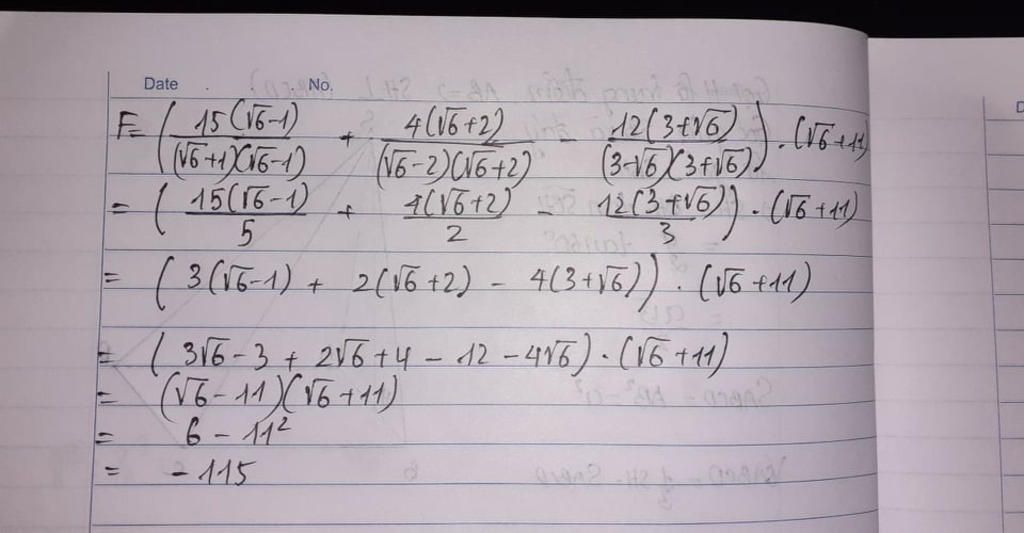 Date . . No.
F = ( 15(√6-1) / (√6+1)(√6-1) + 4(√6+2) / (√6-2)(√6+2) - 12(3+√6) / (3-√6)(3+√6) ) . (√6+11)
= ( 15(√6-1) / 5 + 4(√6+2) / 2 - 12(3+√6) / 3 ) . (√6+11)
= ( 3(√6-1) + 2(√6+2) - 4(3+√6) ) . (√6+11)
= ( 3√6 - 3 + 2√6 + 4 - 12 - 4√6 ) . (√6+11)
= (√6 - 11)(√6 + 11)
= 6 - 11²
= -115